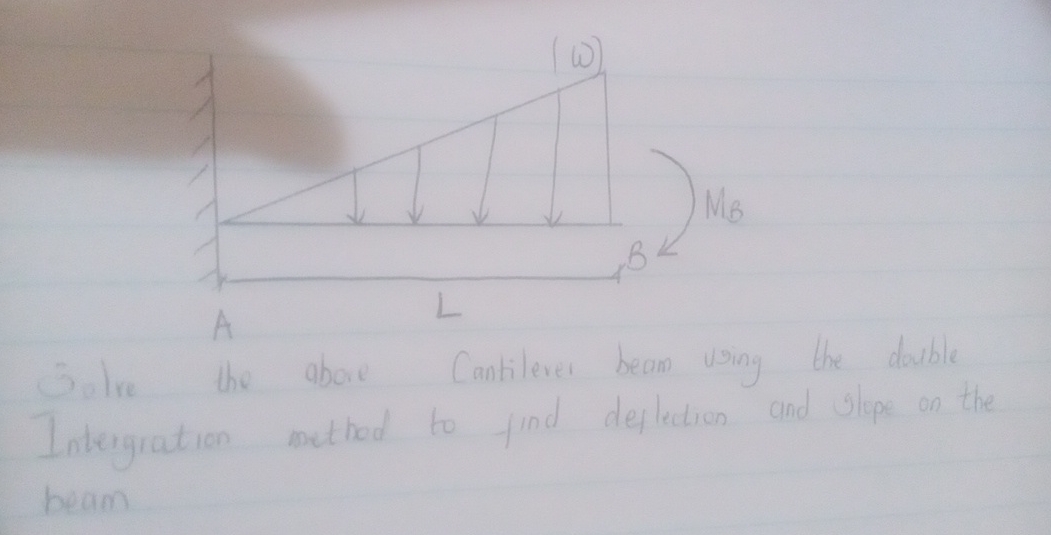 (W)
MB
B
L
A
Solve the above Cantilever beam using the double
Intergration method to find deflection and slope on the
beam